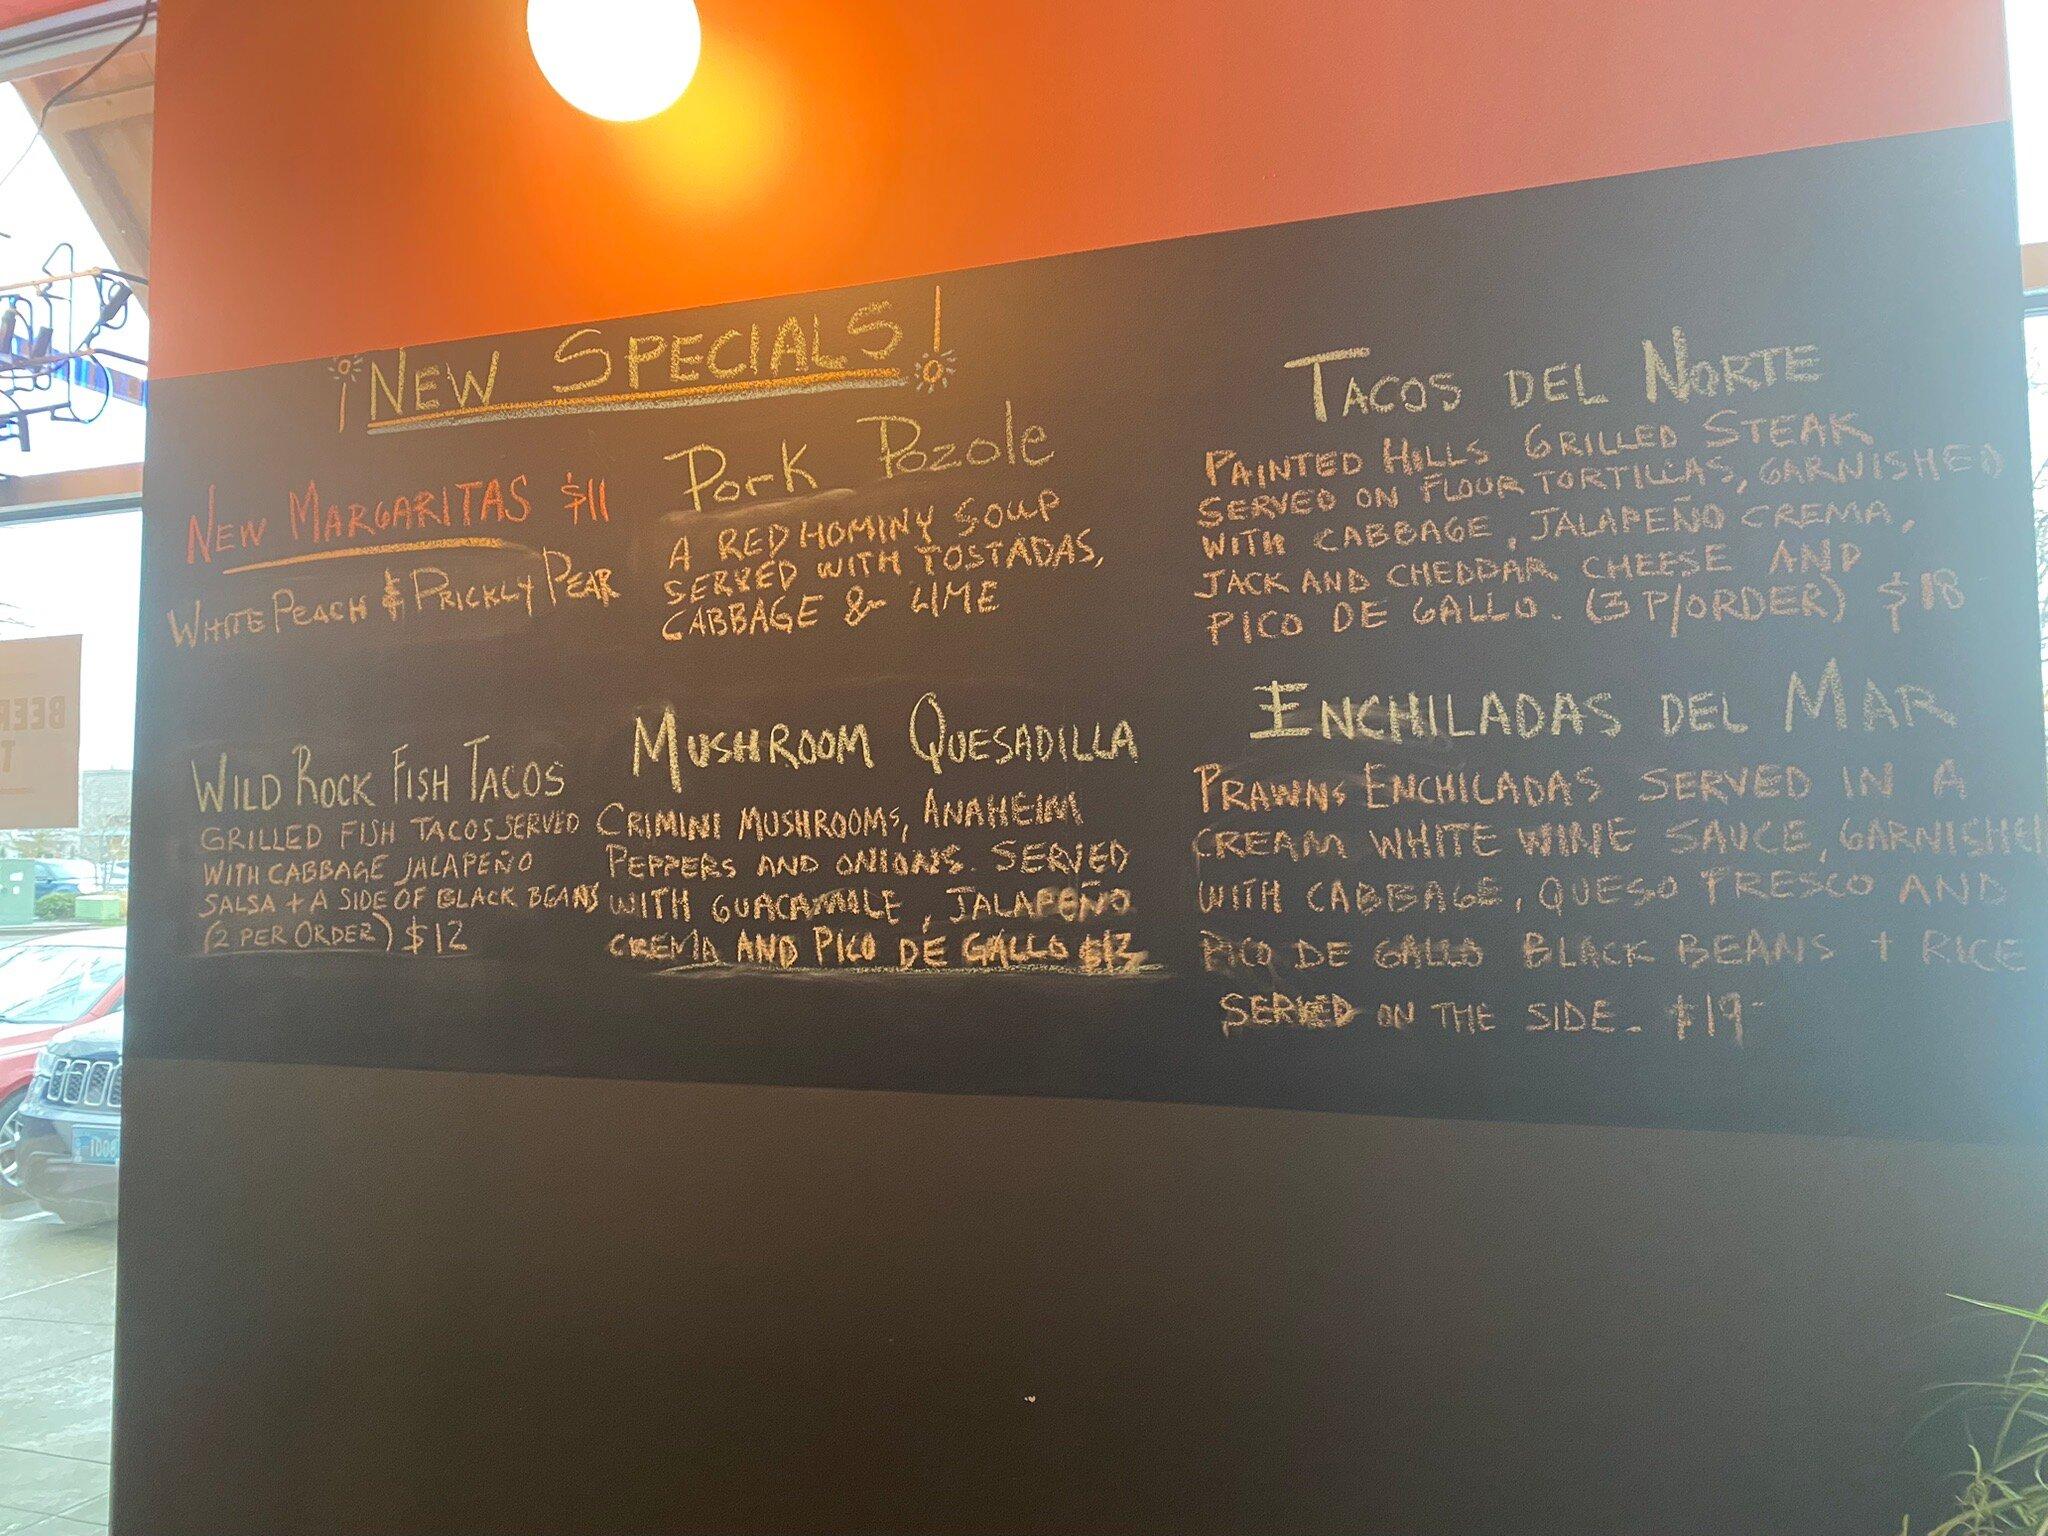 ¡NEW SPECIALS!
NEW MARGARITAS $11
WHITE PEACH & PRICKLY PEAR
Pork Pozole
A RED HOMINY SOUP
SERVED WITH TOSTADAS,
CABBAGE & LIME
TACOS DEL NORTE
PAINTED HILLS GRILLED STEAK
SERVED ON FLOUR TORTILLAS, GARNISHED
WITH CABBAGE, JALAPEÑO CREMA,
JACK AND CHEDDAR CHEESE AND
PICO DE GALLO. (3 P/ORDER) $18
WILD ROCK FISH TACOS
GRILLED FISH TACOS SERVED
WITH CABBAGE JALAPEÑO
SALSA + A SIDE OF BLACK BEANS
(2 PER ORDER) $12
MUSHROOM QUESADILLA
CRIMINI MUSHROOMS, ANAHEIM
PEPPERS AND ONIONS. SERVED
WITH GUACAMOLE, JALAPEÑO
CREMA AND PICO DE GALLO
ENCHILADAS DEL MAR
PRAWNS ENCHILADAS SERVED IN A
CREAM WHITE WINE SAUCE, GARNISHED
WITH CABBAGE, QUESO FRESCO AND
PICO DE GALLO BLACK BEANS + RICE
SERVED ON THE SIDE. $19
BEER